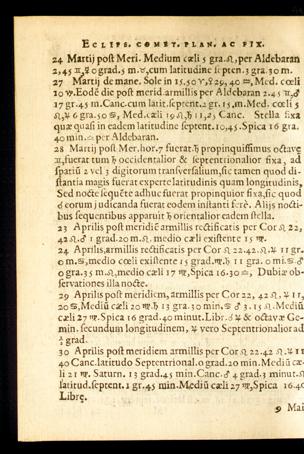 ECLIPS. COMET. PLAN. AC FIX.
24 Martij post Meri. Medium cæli 5 gra. ♌, per Aldebaran
2,45 ♊, ♀ 0 grad. 5 m. ♉, cum latitudine septen. 3 gra. 30 m.
27 Martij de mane. Sole in 15. 50 ♈, ♀ 29, 40 ♒, Med. cœli
10 ♑. Eodē die post merid. armillis per Aldebaran 2. 45 ♊, ♂
17 gr. 45 m. Canc. cum latit. septent. 2 gr. 15. m. Med. cœli 5
♌, ♃ 6 gra. 50 ♋, Med. cæli 19 ♌, ♄ 11, 2, Canc. Stella fixa
quæ quasi in eadem latitudine septent. 10, 45. Spica 16 gra.
40 min. ♎ per Aldebaran.
28 Martij post Mer. hor. 7 fuerat ♄ propinquissimus octavę
♊, fuerat tum ♄ occidentalior & septentrionalior fixa, ad
spatiū 2 vel 3 digitorum transversalium, sic tamen quod di-
stantia magis fuerat ex parte latitudinis quam longitudinis,
Sed nocte sequēte adhuc fuerat propinquior fixæ, sic quod
eorum judicanda fuerat eodem instanti ferè. Alijs nocti-
bus sequentibus apparuit ♄ orientalior eadem stella.
23 Aprilis post meridiē armillis rectificatis per Cor ♌ 22,
42 ♌, ♂ 1 grad. 20 m. ♌, medio cæli existente 15 ♍.
24 Aprilis, armillis rectificatis per Cor ♌ 22. 42 ♌ ♃ 11 gr.
0 m. ♋, medio cœli existente 15 grad. ♍, ♄ 11 gra. 0 mi. ♋ ♂
0 gra. 35 m. ♌, medio cæli 27 ♍, Spica 16. 30 ♎, Dubiæ ob-
servationes illa nocte.
29 Aprilis post meridiem, armillis per Cor 22, 42 ♌, ♃ 11
20 ♋, Mediū cæli 20 ♍. ♄ 13 gra. 30 min. ♋ ♂ 3. 15 ♌. Mediū
cæli 27 ♍. Spica 16 grad. 40 minut. Libr. ☌ ♃ & octavæ Ge-
min. secundum longitudinem, ♃ vero Septentrionalior ad
½ grad.
30 Aprilis post meridiem armillis per Cor ♌ 22. 42 ♌. ♃ 11
40 Canc. latitudo Septentrional. 0 grad. 20 min. Mediū cæ-
li 21 ♍. Saturn. 13 grad. 45 min. Canc. ♂ 4 grad. 3 minut. ♌
latitud. septent. 1 gr. 45 min. Mediū cæli 27 ♍, Spica 16. 40
Librę.
9 Mai